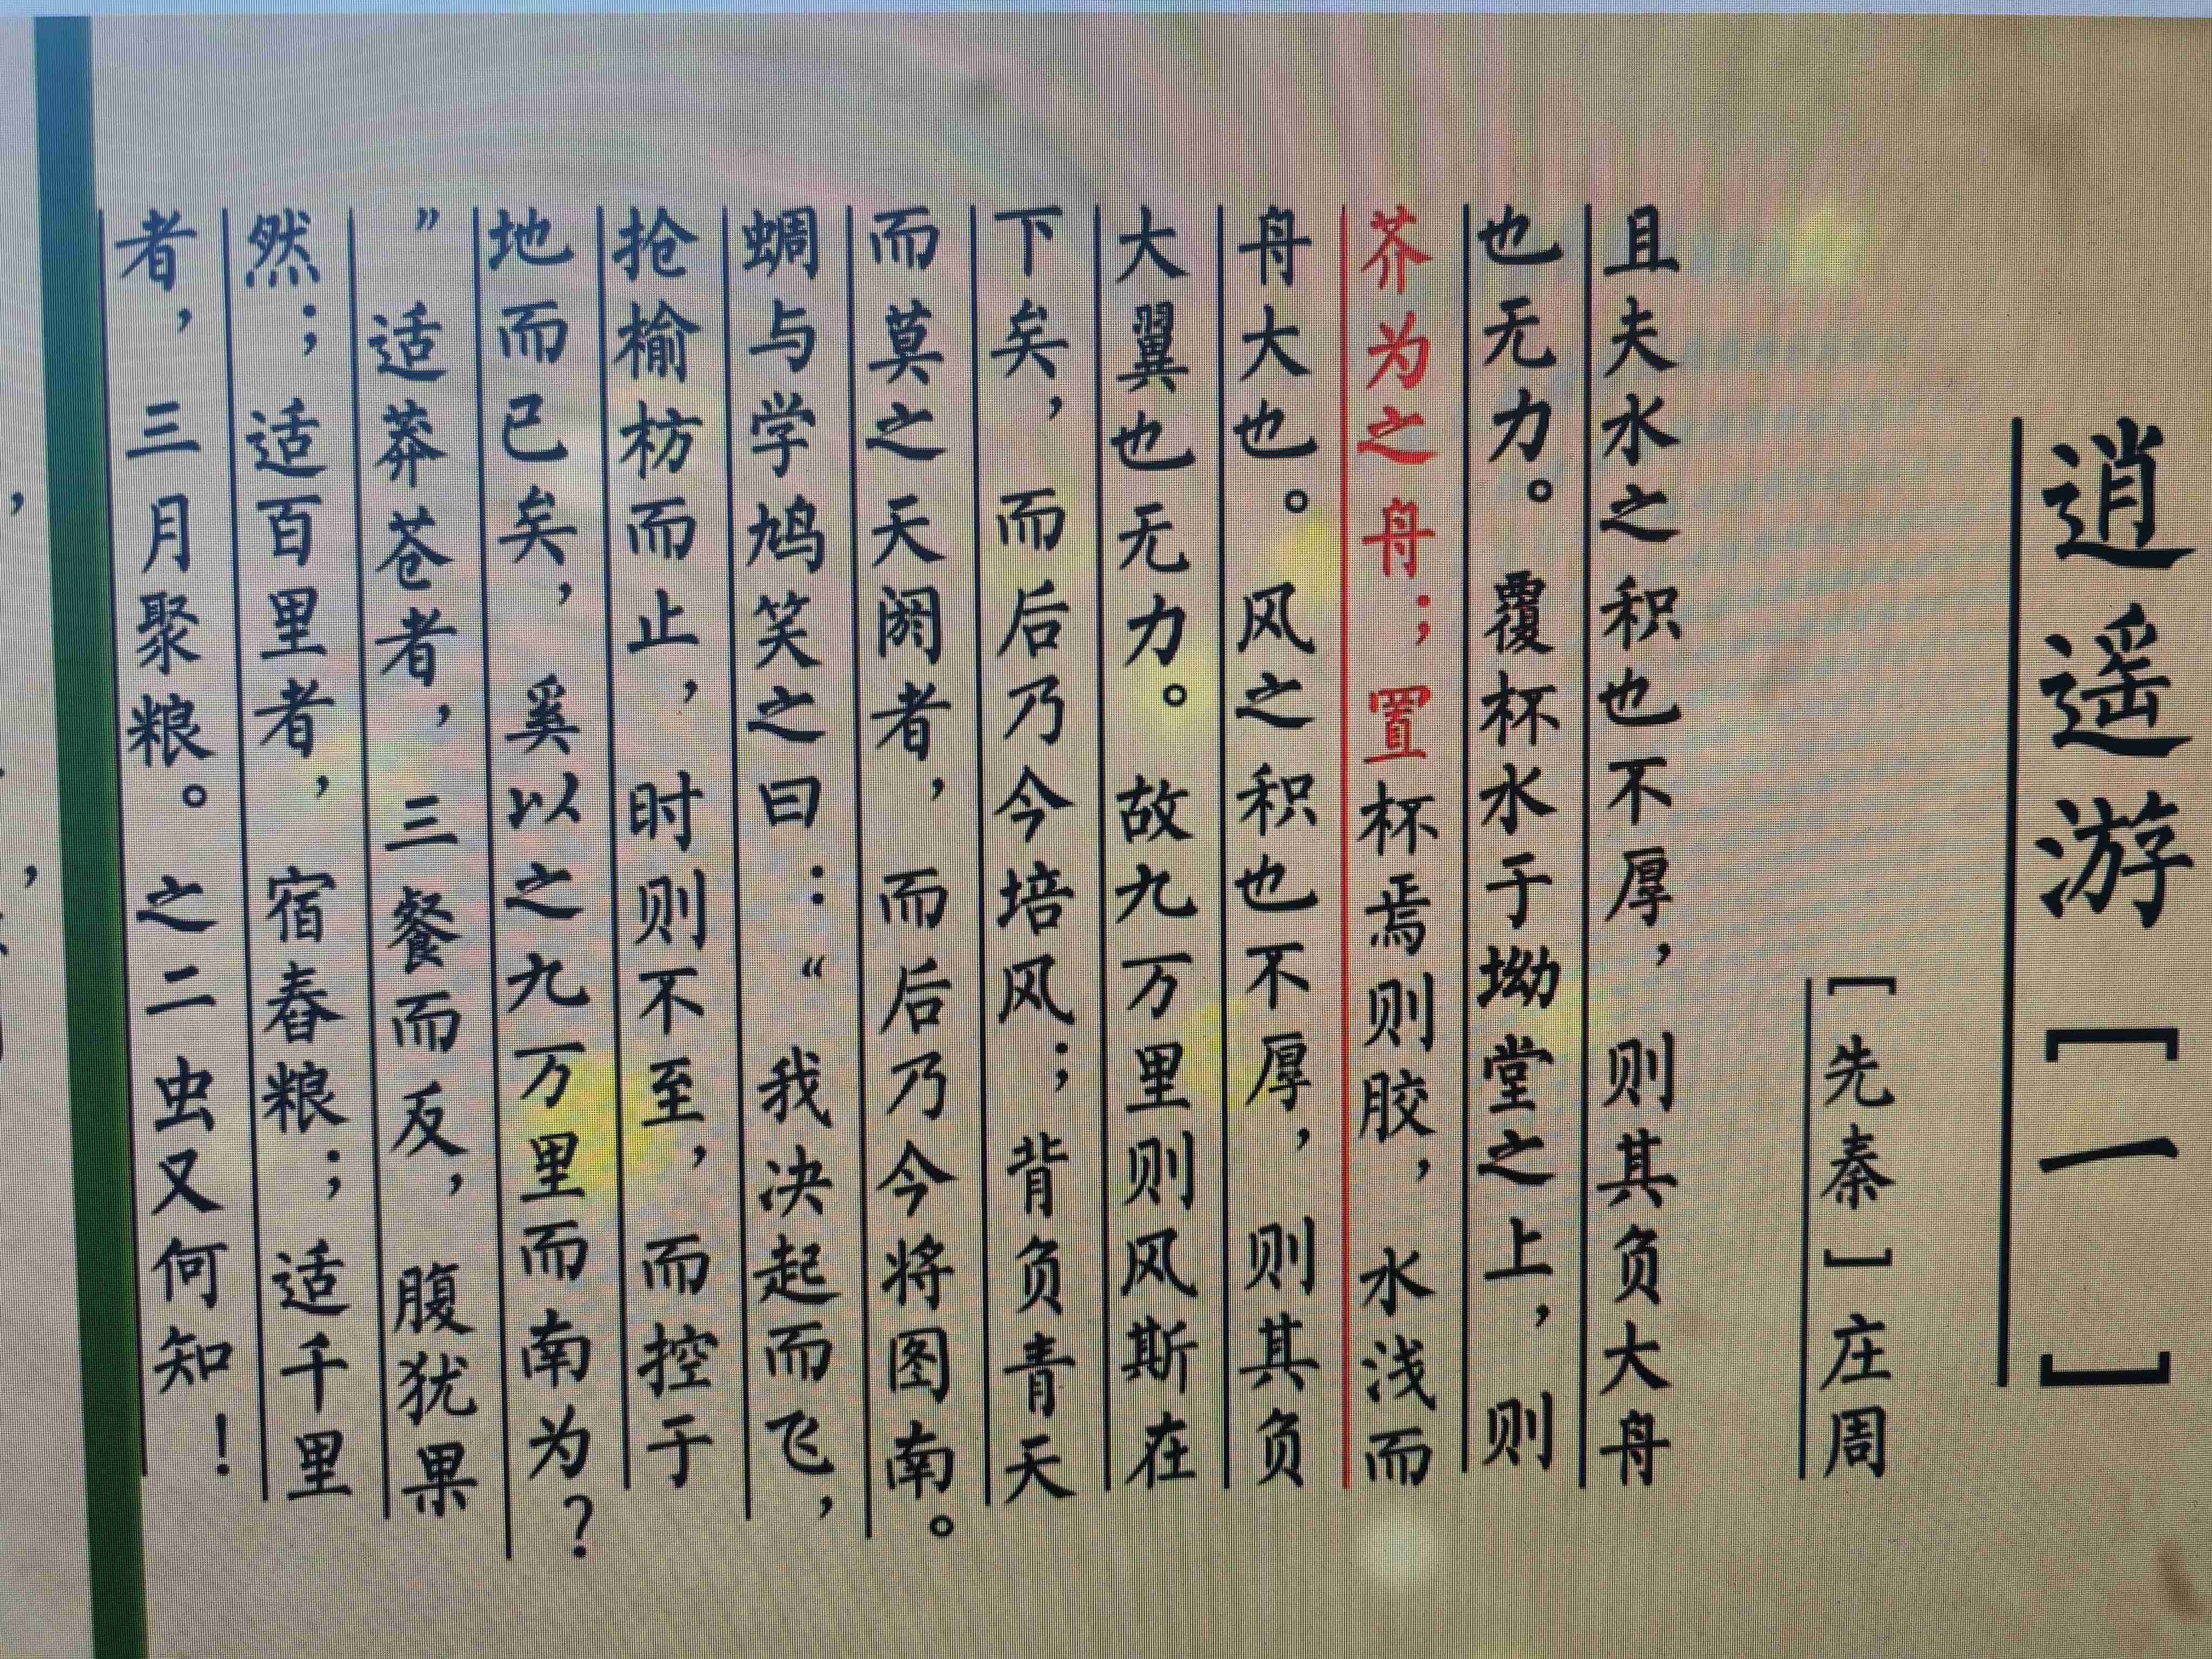 逍遥游［一］
［先秦］庄周
且夫水之积也不厚，则其负大舟
也无力。覆杯水于坳堂之上，则
芥为之舟；置杯焉则胶，水浅而
舟大也。风之积也不厚，则其负
大翼也无力。故九万里则风斯在
下矣，而后乃今培风；背负青天
而莫之夭阏者，而后乃今将图南。
蜩与学鸠笑之曰：“我决起而飞，
抢榆枋而止，时则不至，而控于
地而已矣，奚以之九万里而南为？
”适莽苍者，三餐而反，腹犹果
然；适百里者，宿舂粮；适千里
者，三月聚粮。之二虫又何知！